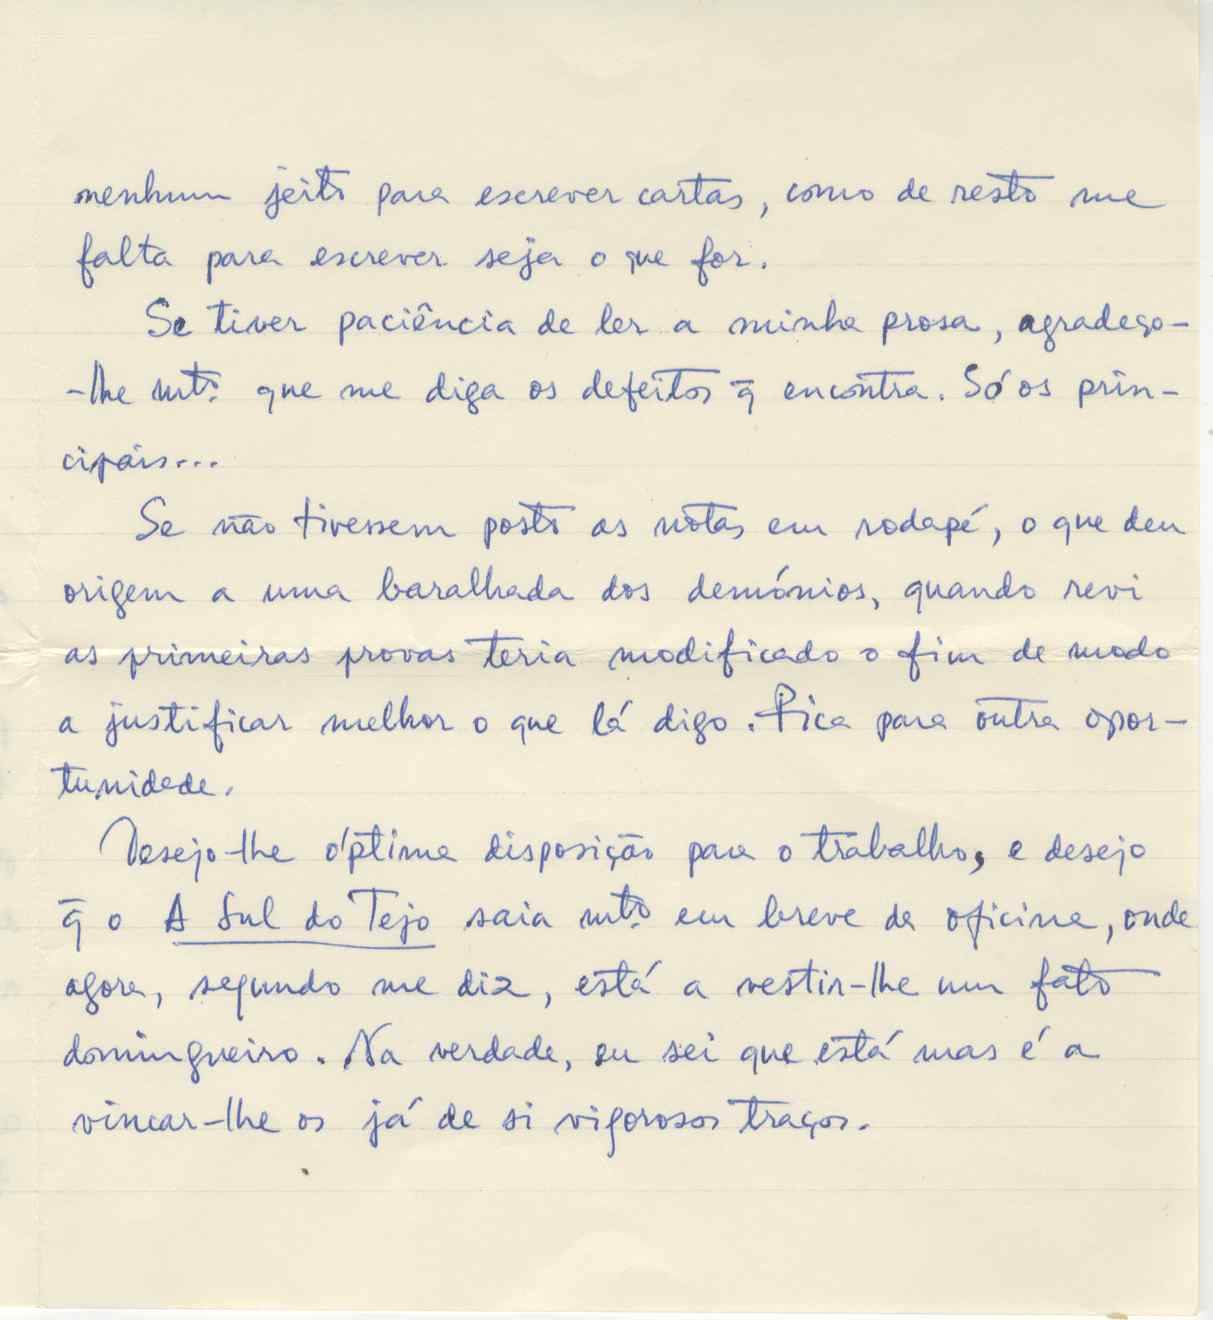 nenhum jeito para escrever cartas, como de resto me
falta para escrever seja o que for.
Se tiver paciência de ler a minha prosa, agradeço-
-lhe mtº que me diga os defeitos q̄ encontra. Só os prin-
cipais...
Se não tivessem posto as notas em rodapé, o que deu
origem a uma baralhada dos demónios, quando revi
as primeiras provas teria modificado o fim de modo
a justificar melhor o que lá digo. Fica para outra opor-
tunidade.
Desejo-lhe óptima disposição para o trabalho, e desejo
q̄ o A Sul do Tejo saia mtº em breve da oficina, onde
agora, segundo me diz, está a vestir-lhe um fato
domingueiro. Na verdade, eu sei que está mas é a
vincar-lhe os já de si vigorosos traços.